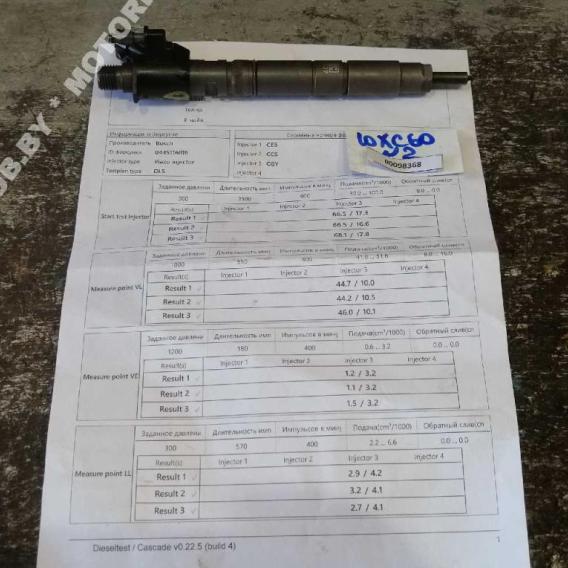 10XC60
N2
00098368
Производитель Bosch
Injector type Piezo injector
Testplan type DLS
Injector 1 CES
Injector 2 CCS
Injector 3 CGY
Injector 4
Start test injector
Заданное давлени Длительность имп Импульсов в мин Подача(cm³/1000) Обратный слив(cm
300
Result(s) Injector 1 Injector 2 Injector 3 Injector 4
Result 1 66.5 / 17.3
Result 2 66.5 / 16.6
Result 3 68.1 / 17.8
Measure point VL
Заданное давлени Длительность имп Импульсов в мин Подача(cm³/1000) Обратный слив(cm
Result(s) Injector 1 Injector 2 Injector 3 Injector 4
Result 1 44.7 / 10.0
Result 2 44.2 / 10.5
Result 3 46.0 / 10.1
Measure point VE
Заданное давлени Длительность имп Импульсов в мин Подача(cm³/1000) Обратный слив(cm
1200 180 400 0.6 ... 3.2 0.0 ... 0.0
Result(s) Injector 1 Injector 2 Injector 3 Injector 4
Result 1 1.2 / 3.2
Result 2 1.1 / 3.2
Result 3 1.5 / 3.2
Measure point LL
Заданное давлени Длительность имп Импульсов в мин Подача(cm³/1000) Обратный слив(cm
300 570 400 2.2 ... 6.6 0.0 ... 0.0
Result(s) Injector 1 Injector 2 Injector 3 Injector 4
Result 1 2.9 / 4.2
Result 2 3.2 / 4.1
Result 3 2.7 / 4.1
Dieseltest / Cascade v0.22.5 (build 4) 1